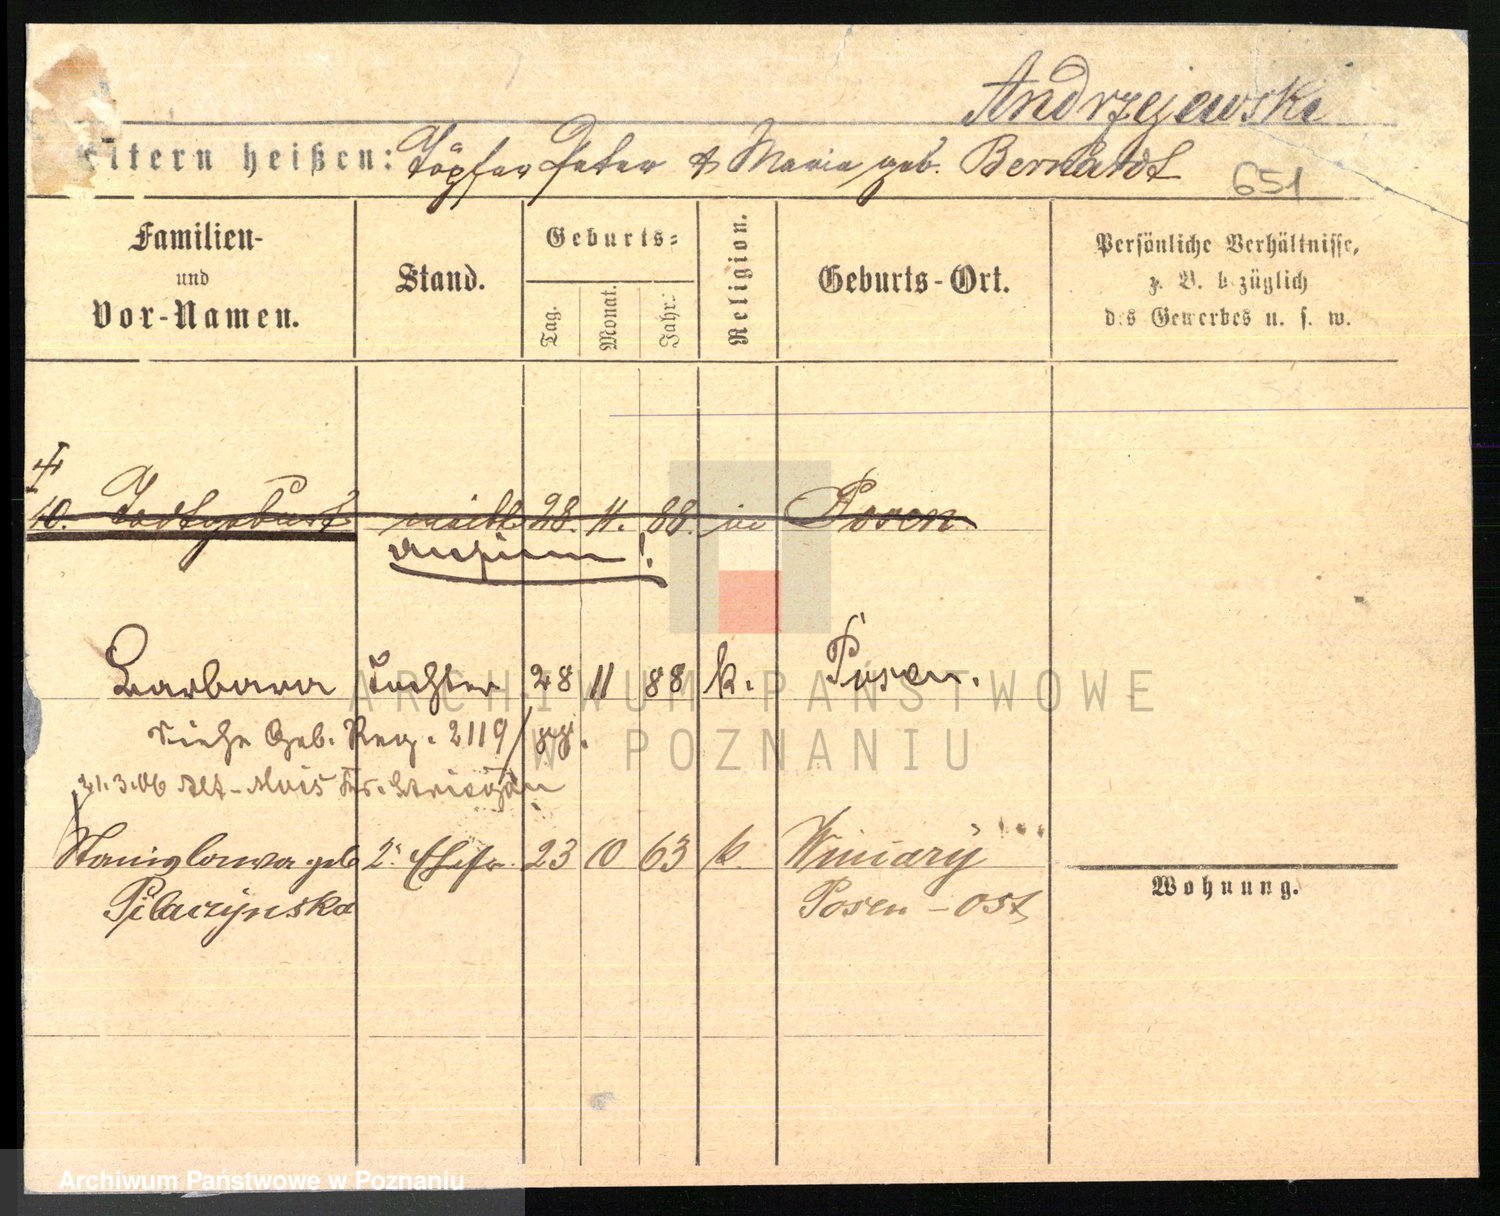 Andrzejewski
Eltern heißen: Töpfer Peter & Maria geb. Bernardt
651
Familien-
und
Vor-Namen.
Stand.
Geburts-
Tag.
Monat.
Jahr.
Religion.
Geburts-Ort.
Persönliche Verhältnisse,
z. B. bezüglich
des Gewerbes u. s. w.
10. Todtgeburt weibl. 28. 11. 88. in Posen
Barbara Tochter 28 11 88 k. Posen.
siehe Geb. Reg. 2119/88.
21.3.06
Stanislawa geb 2. Ehefr. 23 10 63 k. Winiary
Pilaczynska Posen-Ost
Wohnung.
ARCHIWUM PAŃSTWOWE
W POZNANIU
Archiwum Państwowe w Poznaniu